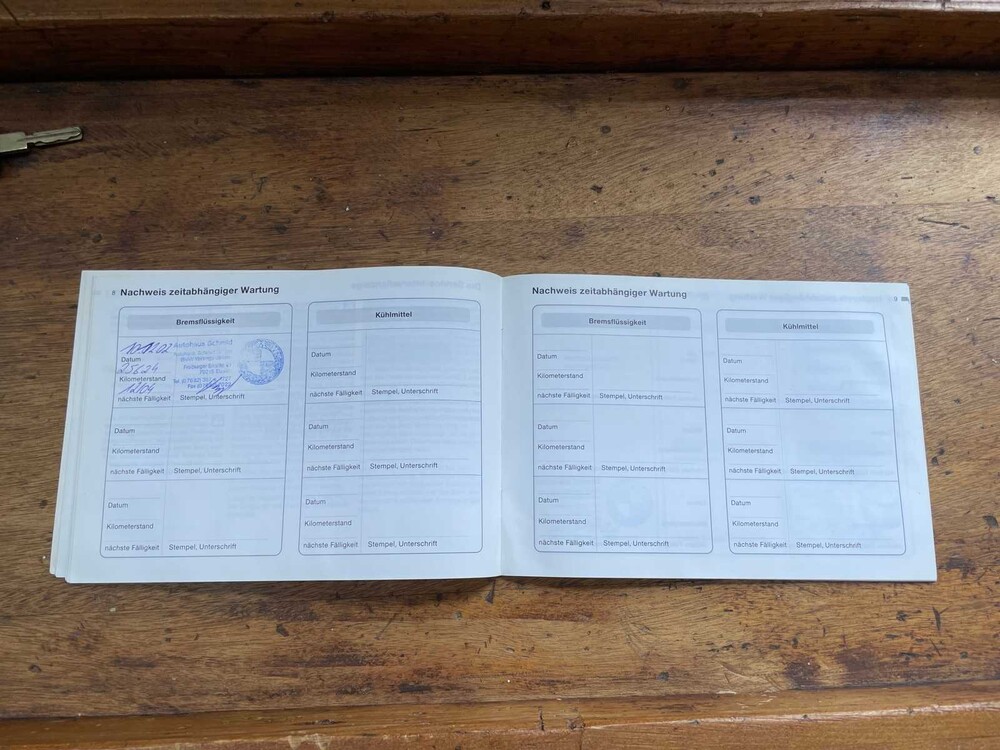 8 Nachweis zeitabhängiger Wartung
Bremsflüssigkeit
Autohaus Schmid
Datum
25624
Kilometerstand
12/04
nächste Fälligkeit Stempel, Unterschrift
Datum
Kilometerstand
nächste Fälligkeit Stempel, Unterschrift
Datum
Kilometerstand
nächste Fälligkeit Stempel, Unterschrift
Kühlmittel
Datum
Kilometerstand
nächste Fälligkeit Stempel, Unterschrift
Datum
Kilometerstand
nächste Fälligkeit Stempel, Unterschrift
Datum
Kilometerstand
nächste Fälligkeit Stempel, Unterschrift
Nachweis zeitabhängiger Wartung
9
Bremsflüssigkeit
Datum
Kilometerstand
nächste Fälligkeit Stempel, Unterschrift
Datum
Kilometerstand
nächste Fälligkeit Stempel, Unterschrift
Datum
Kilometerstand
nächste Fälligkeit Stempel, Unterschrift
Kühlmittel
Datum
Kilometerstand
nächste Fälligkeit Stempel, Unterschrift
Datum
Kilometerstand
nächste Fälligkeit Stempel, Unterschrift
Datum
Kilometerstand
nächste Fälligkeit Stempel, Unterschrift